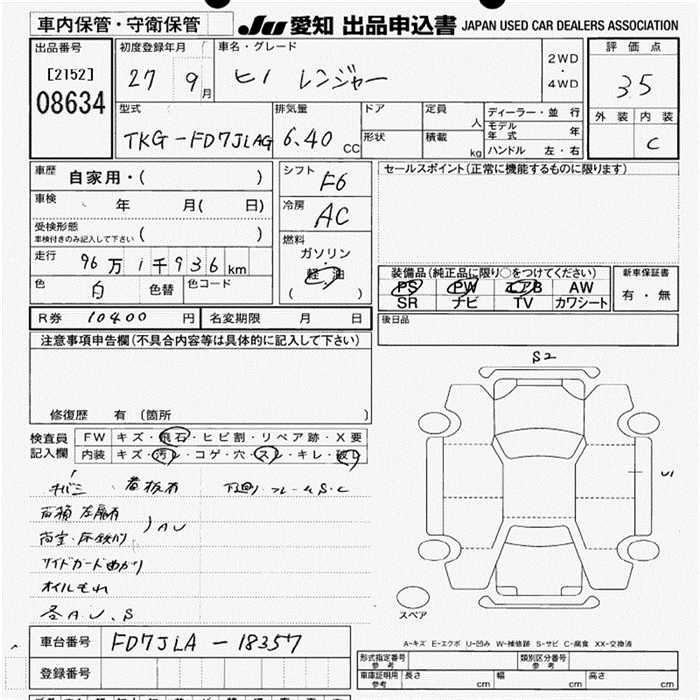 車内保管・守衛保管 JU 愛知 出品申込書 JAPAN USED CAR DEALERS ASSOCIATION
出品番号 初度登録年月 車名・グレード 2WD・4WD 評価点
[2152] 27 9月 ヒノ レンジャー 35
08634
型式 排気量 ドア 定員 人 ディーラー・並行 外装 内装
TKG-FD7JLAG 6.40 CC 形状 積載 kg モデル年式 年 C
ハンドル 左・右
車歴 自家用・( ) シフト F6 セールスポイント(正常に機能するものに限ります)
車検 年 月( 日) 冷房 AC
受検形態
車検付きのみ記入して下さい( ) 燃料
走行 96万1千936km ガソリン・軽油 装備品(純正品に限り○をつけてください) 新車保証書
色 白 色替 色コード ( ) PS PW エアB AW 有・無
SR ナビ TV カワシート
R券 10400円 名変期限 月 日 後日品
注意事項申告欄(不具合内容等は具体的に記入して下さい)
S2
修復歴 有(箇所 )
検査員 FW キズ・飛石・ヒビ割・リペア跡・X要
記入欄 内装 キズ・汚レ・コゲ・穴・スレ・キレ・破レ
看板有 下廻り フレームS・C
U1
AU
サイドガード曲がり
オイルもれ
各AU、S
スペア
A-キズ E-エクボ U-凹み W-補修跡 S-サビ C-腐食 XX-交換済
車台番号 FD7JLA-18357
形式指定番号 参考 類別区分番号 参考
登録番号 車庫証明用 参考 長さ cm 幅 cm 高さ cm